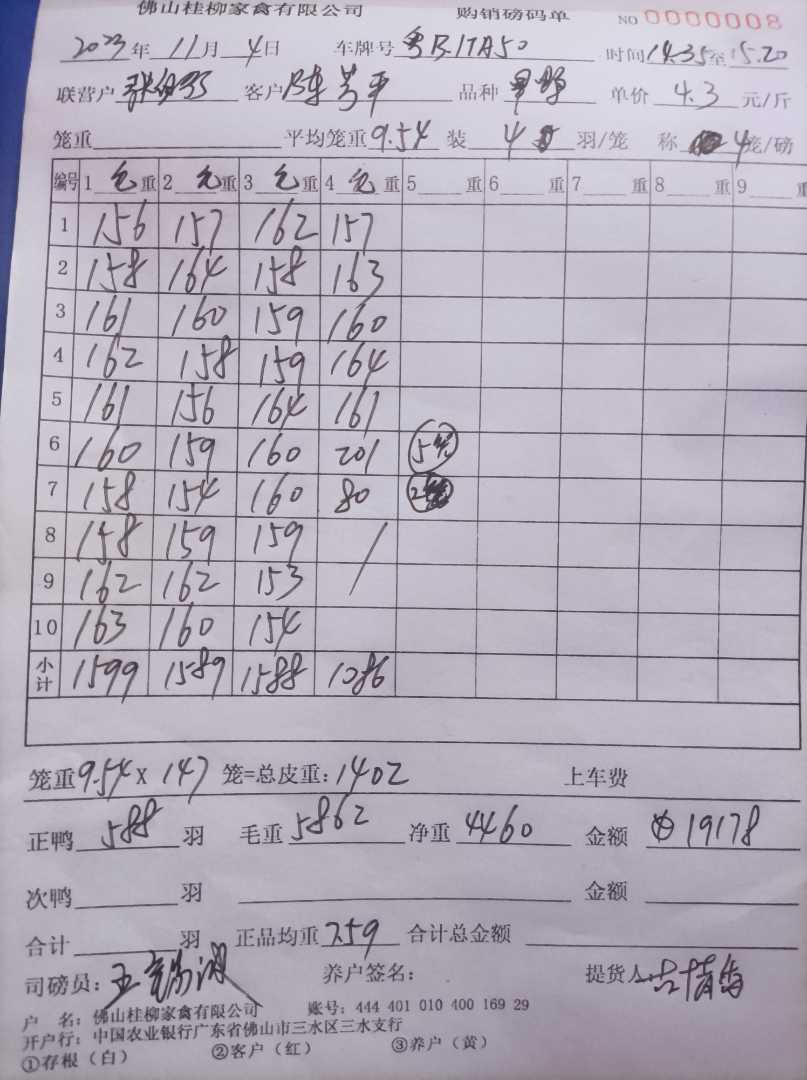 佛山桂柳家禽有限公司 购销磅码单 NO 0000008
2023年 11月 4日 车牌号 粤B17A50 时间 14.35至15.20
联营户 客户 陈芳平 品种 单价 4.3 元/斤
笼重 平均笼重 9.54 装 4 羽/笼 称 4笼/磅
编号 1 毛重 2 毛重 3 毛重 4 毛重 5 重 6 重 7 重 8 重 9 重
1 156 157 162 157
2 158 164 158 163
3 161 160 159 160
4 162 158 159 164
5 161 156 164 161
6 160 159 160 201 5笼
7 158 154 160 80
8 158 159 159 /
9 162 162 153
10 163 160 154
小计 1599 1589 1588 1086
笼重 9.54 X 147 笼=总皮重: 1402 上车费
正鸭 588 羽 毛重 5862 净重 4460 金额 19178
次鸭 羽 金额
合计 羽 正品均重 7.59 合计总金额
司磅员: 养户签名: 提货人:
户 名: 佛山桂柳家禽有限公司 账号: 444 401 010 400 169 29
开户行: 中国农业银行广东省佛山市三水区三水支行
①存根（白） ②客户（红） ③养户（黄）